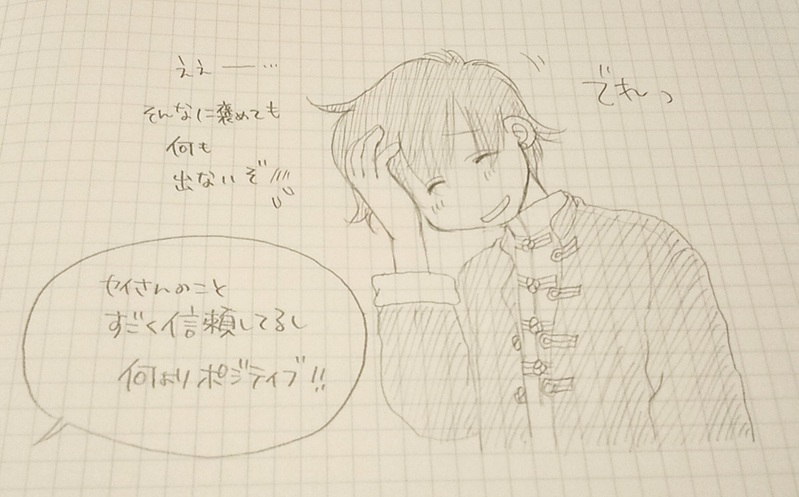 ええ――…
そんなに褒めても
何も
出ないぞ!!!
でれーっ
セイさんのこと
すごく信頼してるし
何よりポジティブ!!